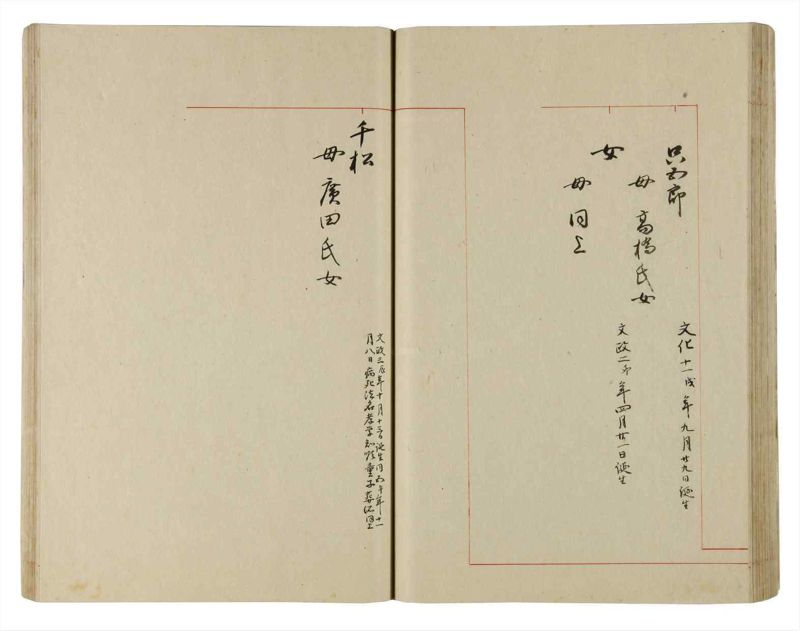 只四郎
母 高橋氏女
文化十一戌年九月廿九日誕生
女
母 同上
文政二卯年四月廿一日誕生
千松
母 廣田氏女
文政三辰年十月十三日誕生同五午年十一
月八日病死法名孝学知岸童子葬所同上